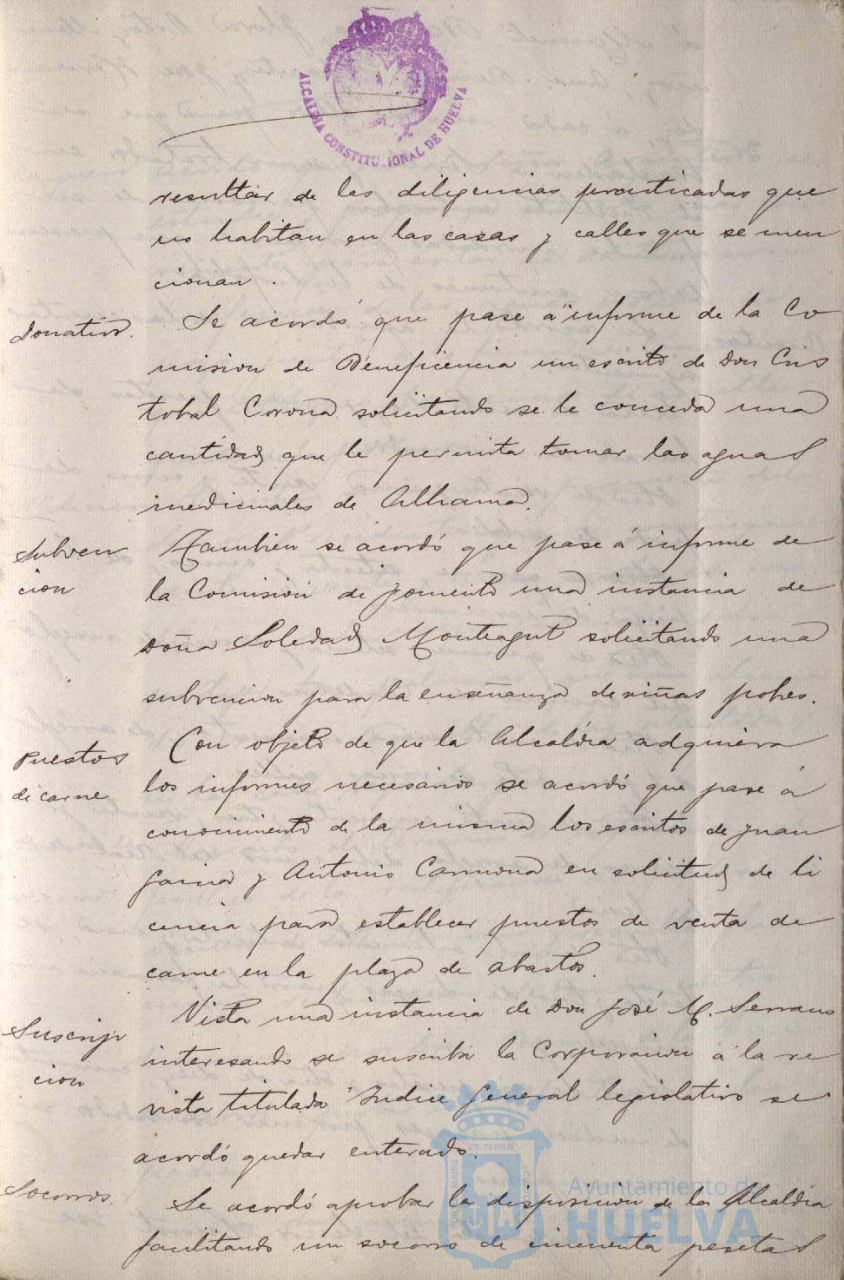 ALCALDÍA CONSTITUCIONAL DE HUELVA
resultar de las diligencias practicadas que
no habitan en las casas y calles que se men
cionan.
Donativo.
Se acordó que pase á informe de la Co
mision de Beneficencia un escrito de Don Cris
tobal Corona solicitando se le conceda una
cantidad que le permita tomar las aguas
medicinales de Alhama.
Subven
cion
Tambien se acordó que pase á informe de
la Comisión de fomento una instancia de
Doña Soledad Montagut solicitando una
subvencion para la enseñanza de niñas pobres.
Puestos
de carne
Con objeto de que la Alcaldía adquiera
los informes necesarios se acordó que pase á
conocimiento de la misma los escritos de Juan
Garcia y Antonio Carmona en solicitud de li
cencia para establecer puestos de venta de
carne en la plaza de abastos.
Suscrip
cion
Vista una instancia de Don José M. Serrano
interesando se suscriba la Corporacion á la re
vista titulada "Indice General legislativo se
acordó quedar enterado.
Socorros
Se acordó aprobar la disposicion de la Alcaldía
facilitando un socorro de cincuenta pesetas
Ayuntamiento de
HUELVA